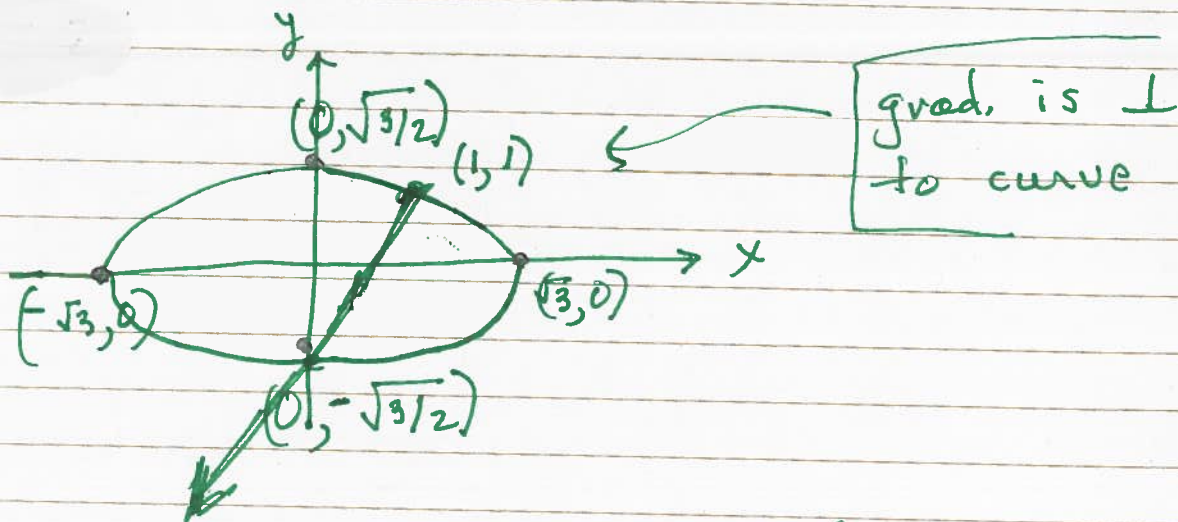 y
(0,√3/2)
(1,1)
grad. is ⊥
to curve
x
(-√3,0)
(√3,0)
(0,-√3/2)